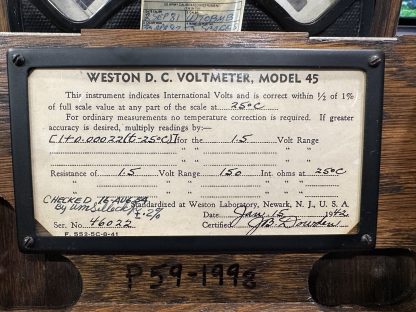 WESTON D. C. VOLTMETER, MODEL 45
This instrument indicates International Volts and is correct within ½ of 1%
of full scale value at any part of the scale at 25°C
For ordinary measurements no temperature correction is required. If greater
accuracy is desired, multiply readings by:—
[1+0.00022(t-25°C)] for the 1.5 Volt Range
" " " "
" " " "
Resistance of 1.5 Volt Range 150 Int. ohms at 25°C
" " " "
" " " "
CHECKED 16 AUG 84
By
± .2% Standardized at Weston Laboratory, Newark, N. J., U. S. A.
Date Jan. 15 1942
Ser. No. 46022 Certified J.B. Dowden
F. 552-5C-8-41
P 59-1998